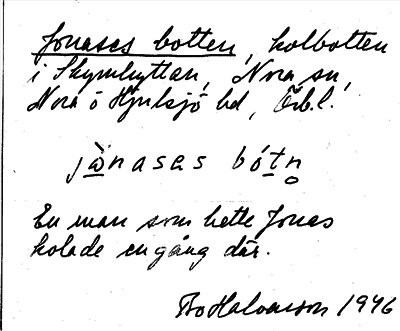 Jonases botten, kolbotten
i Skymhyttan, Nora sn,
Nora o Hjulsjö hd, Örb.l.
jò̱nasas bót̲n̥
En man som hette Jonas
kolade en gång där.
Bo Halvarson 1946